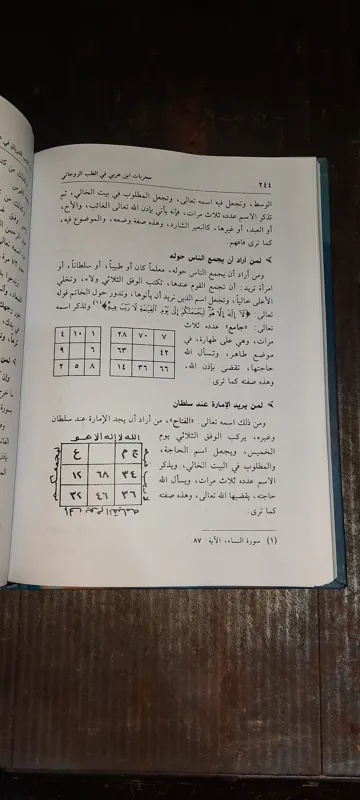 ٢٤٤
مجربات ابن عربي في الطب الروحاني
الوسط، وتجعل فيه اسمه تعالى، وتجعل المطلوب في بيت الخالي، ثم
تذكر الاسم عدده ثلاث مرات، فإنه يأتي بإذن الله تعالى الغائب، والأخ،
أو العبد، أو غيرها، كالبعير الشارد، وهذه صفة وضعه، والموضوع فيه،
كما ترى فافهم.
لمن أراد أن يجمع الناس حوله
ومن أراد أن يجمع الناس حوله، معلماً كان أو طبيباً، أو سلطاناً، أو
امرأة تريد: أن تجمع القوم عندها، تكتب الوفق الثلاثي ولاء، وتخلي
الأعلى خالياً، وتجعل اسم الذين تريد أن يأتوها، وتدور حول الخاتم قوله
تعالى: ﴿لَا إِلَهَ إِلَّا هُوَ لَيَجْمَعَنَّكُمْ إِلَى يَوْمِ الْقِيَامَةِ لَا رَيْبَ فِيهِ﴾(١) وتذكر اسمه
تعالى: «جامع» عدده ثلاث
مرات، وهي على طهارة، في
موضع طاهر، وتسأل الله
حاجتها، تقضى بإذن الله،
وهذه صفته كما ترى:
٧ ٧٠ ٢٨
٤٢ ٦٣
٦٦ ٣٦ ١٤
١ ١٠ ٤
٩ ٦
٨ ٥ ٢
لمن يريد الإمارة عند سلطان
ومن ذلك اسمه تعالى: «الفتاح»، من أراد أن يجد الإمارة عند سلطان
وغيره، يركب الوفق الثلاثي يوم
الخميس، ويجعل اسم الحاجة،
والمطلوب في البيت الخالي، ويذكر
الاسم عدده ثلاث مرات، ويسأل الله
حاجته، يقضيها الله تعالى، وهذه صفته
كما ترى:
الله لا اله الا هو
ج م ع
٣٤ ٦٨ ١٢
٣٦ ٤٦ ٣٢
لا ريب فيه
الى يوم القيامة
(١) سورة النساء، الآية: ٨٧